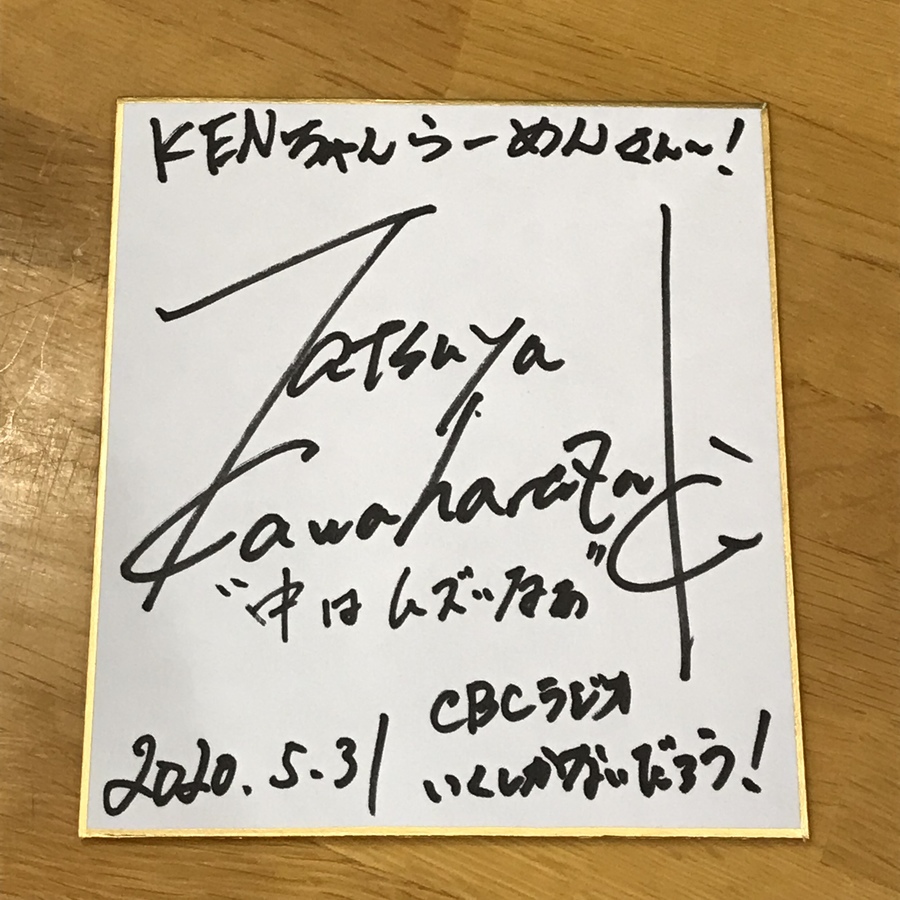 KENちゃんらーめんさん〜!
Tatsuya
Kawaharazaki
"中はムズいなぁ"
CBCラジオ
2020.5.31
いくしかないだろう!